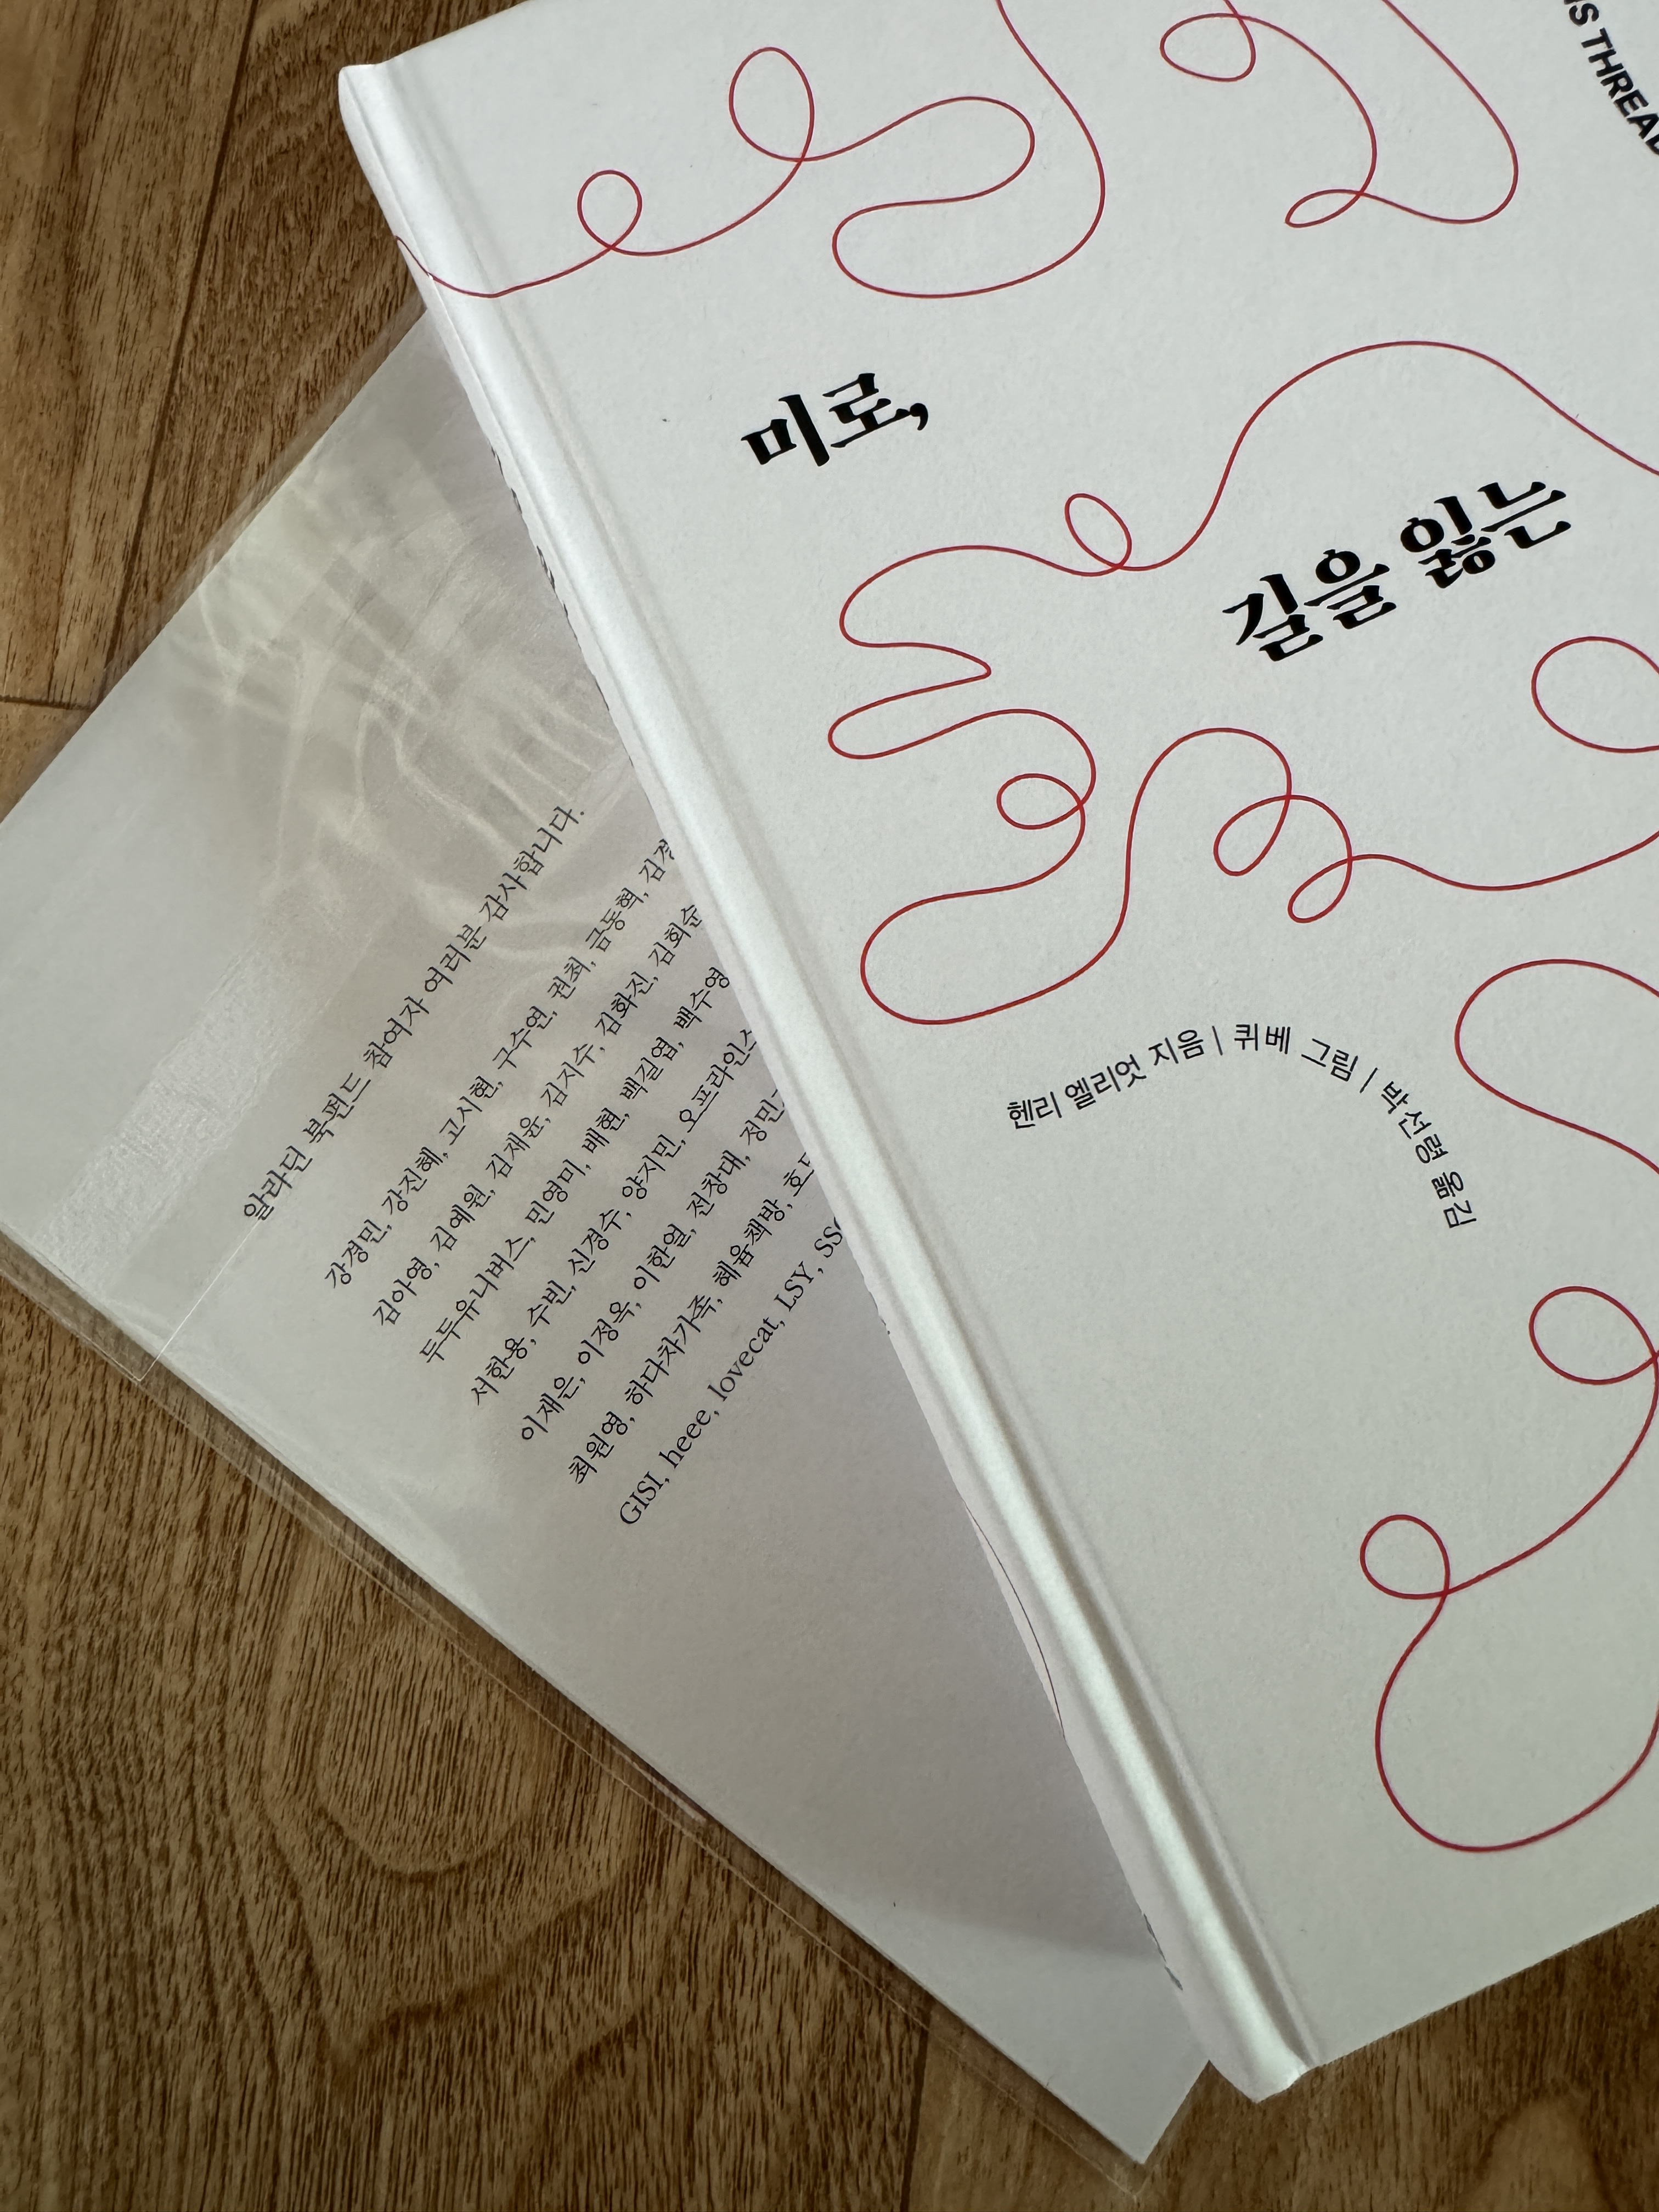 THREAD
미로,
길을 잃는
헨리 엘리엇 지음 | 퀴베 그림 | 박선령 옮김
알라딘 북펀드 참여자 여러분 감사합니다.
강경민, 강진혜, 고시현, 구수연, 권최, 금동혁,
김아영, 김예원, 김재윤, 김지수, 김화진, 김회순
두두유니버스, 민영미, 배현, 백길엽, 백수영
서한용, 수빈, 신경수, 양지민,
이재은, 이정옥, 이한열, 전창대,
최원영, 하다차가족, 혜윰책방,
GISI, heee, lovecat, LSY,